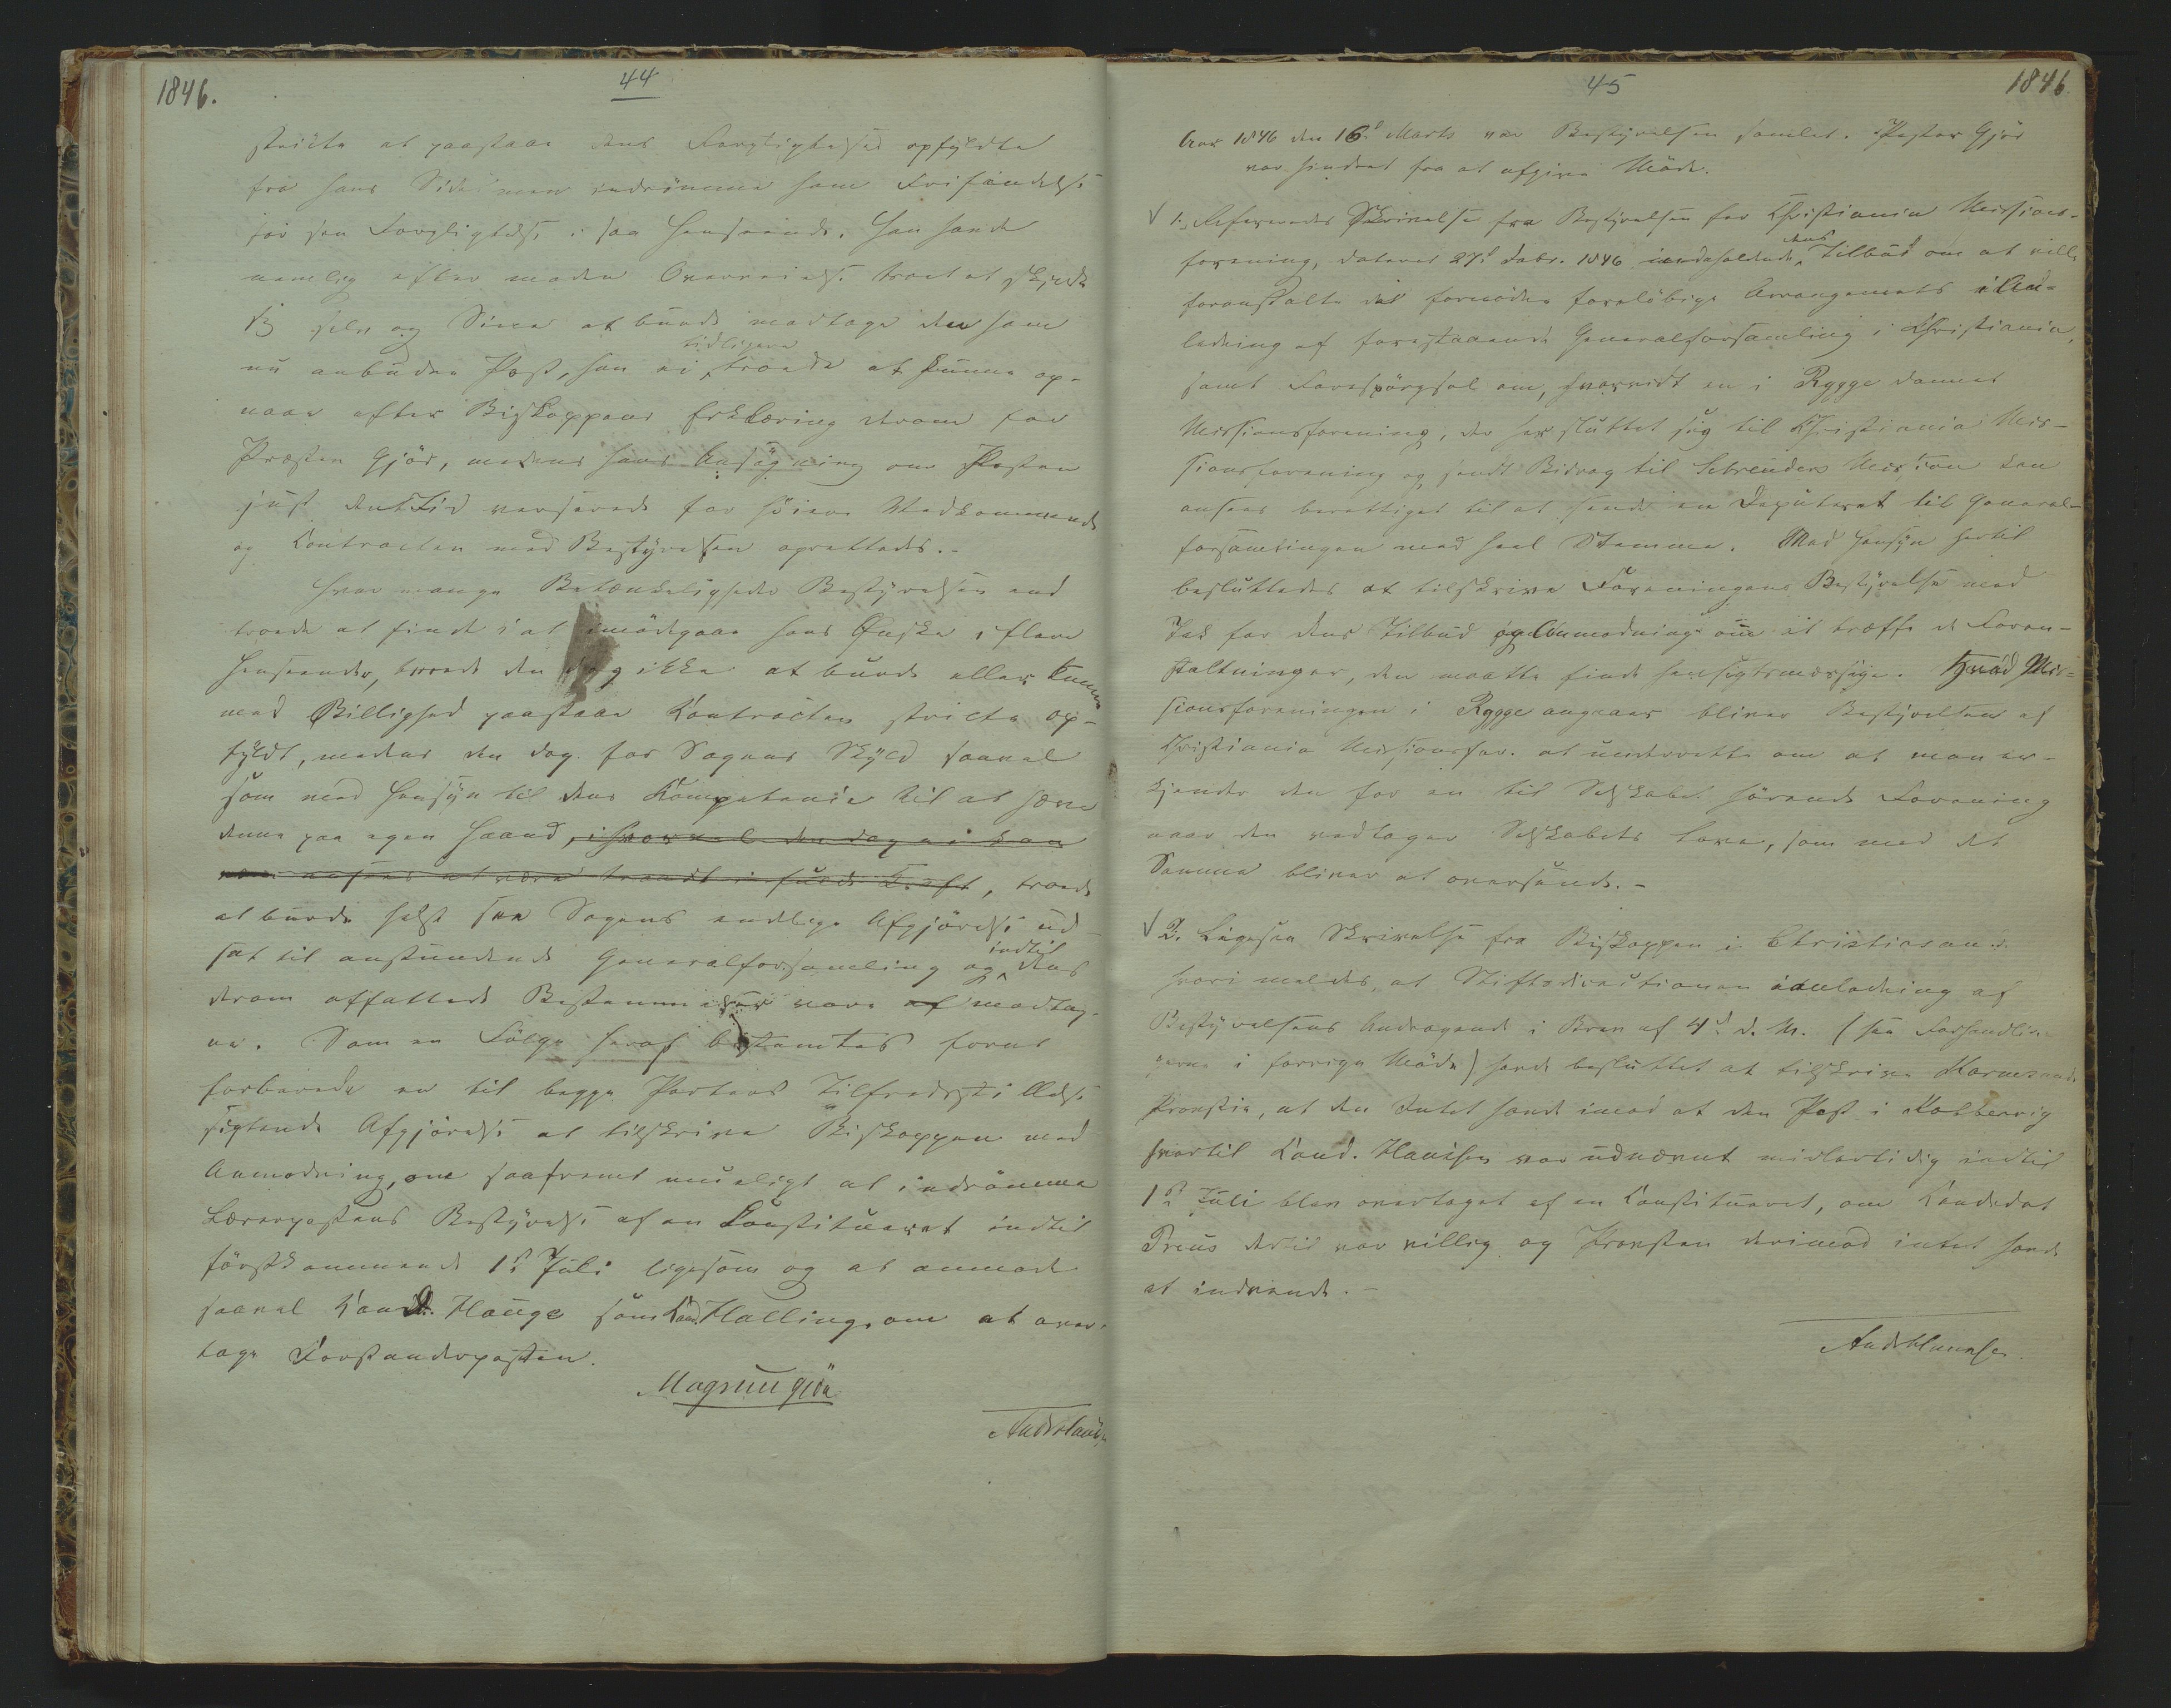 1846.
44
stricte at paastaae dens Forpligtelser opfyldte
fra hans Side men indrömme ham Frifindelse
for sin Forpligtelse i saa Henseende. Han havde
nemlig efter moden Overveielse troet at skylde
sig selv og Sine at burde modtage den ham
nu anbudne Post, han ei tidligere troede at kunne op-
naae efter Biskoppens Erklæring derom for
Præsten Gjör, medens hans Ansögning om Posten
just den Tid verserede for höiere Vedkommende
og Contracten med Bestyrelsen oprettedes.-
Hvor mange Betænkeligheder Bestyrelsen end
troede at finde i at imödegaae hans Önske i flere
Henseender, troede den dog ikke at burde eller kunne
med Billighed paastaae Contracten stricte op-
fyldt, medens den dog for Sagens Skyld saavel
som med Hensyn til dens Kompetence til at hæve
denne paa egen Haand, ihvorvel den dog ei kan
ansees at være traadt i fuld Kraft, troede
at burde helst see Sagens endelige Afgjörelse ud-
sat til anstundende Generalforsamling og indtil dens
derom affattede Bestemmelser vare modtag-
ne. Som en Fölge heraf bestemtes forat
forberede en til begge Parters Tilfredsstillelse
sigtende Afgjörelse at tilskrive Biskoppen med
Anmodning, om saafremt mueligt at indrömme
Lærerpostens Bestyrelse af en Constitueret indtil
förstkommende 1st Juli ligesom og at anmode
saavel Cand. Hauge som Cand. Halling, om at over-
tage Forstanderposten.
Magnus Gjör
And Hauge
45
1846.
Aar 1846 den 16d Marts var Bestyrelsen samlet. Pastor Gjör
var hindret fra at afgive Möde.
1. Refereredes Skrivelse fra Bestyrelsen for Christiania Missions-
forening, dateret 27d Febr. 1846 indeholdende dens Tilbud om at ville
foranstalte det fornödne foreløbige Arrangements i An-
ledning af forestaaende Generalforsamling i Christiania,
samt Forespörgsel om, hvorvidt en i Rygge dannet
Missionsforening, der har sluttet sig til Christiania Mis-
sionsforening og sendt Bidrag til Schreuders Mission kan
ansees berettiget til at sende en Deputeret til General-
forsamlingen med heel Stemme. Med Hensyn hertil
besluttedes at tilskrive Foreningens Bestyrelse med
Tak for dens Tilbud og Anmodning om at træffe de Foran-
staltninger, den maatte finde hensigtsmæssige. Hvad Mis-
sionsforeningen i Rygge angaaer bliver Bestyrelsen af
Christiania Missionsfor. at underrette om at man er-
kjender den for en til Selskabet hörende Forening
naar den vedtager Selskabets Love, som med det
Samme bliver at oversende.-
2. Ligesaa Skrivelse fra Biskoppen i Christians.
hvori meldes, at Stiftsdirectionen i Anledning af
Bestyrelsens Andragende i Brev af 4d d. M. (see Forhandlin-
gerne i forrige Möde) havde besluttet at tilskrive Karmsunds
Provstie, at den Intet havde imod at den Post i Kobbervig
hvortil Cand. Hauge var udnævnt midlertidig indtil
1st Juli blev overtaget af en Constitueret, om Candidat
Preus dertil var villig og Provsten derimod intet havde
at indvende.-
And Hauge